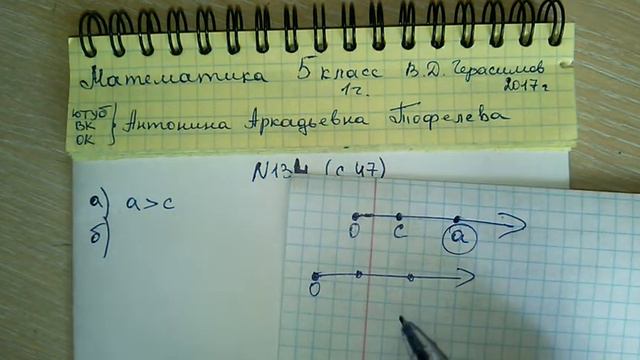 Математика 5 класс В.Д. Герасимов
1ч. 2017г
ЮТУБ
ВК
ОК
Антонина Аркадьевна Тюфелева
N134 (с 47)
а) a > c
б)
O c a
O